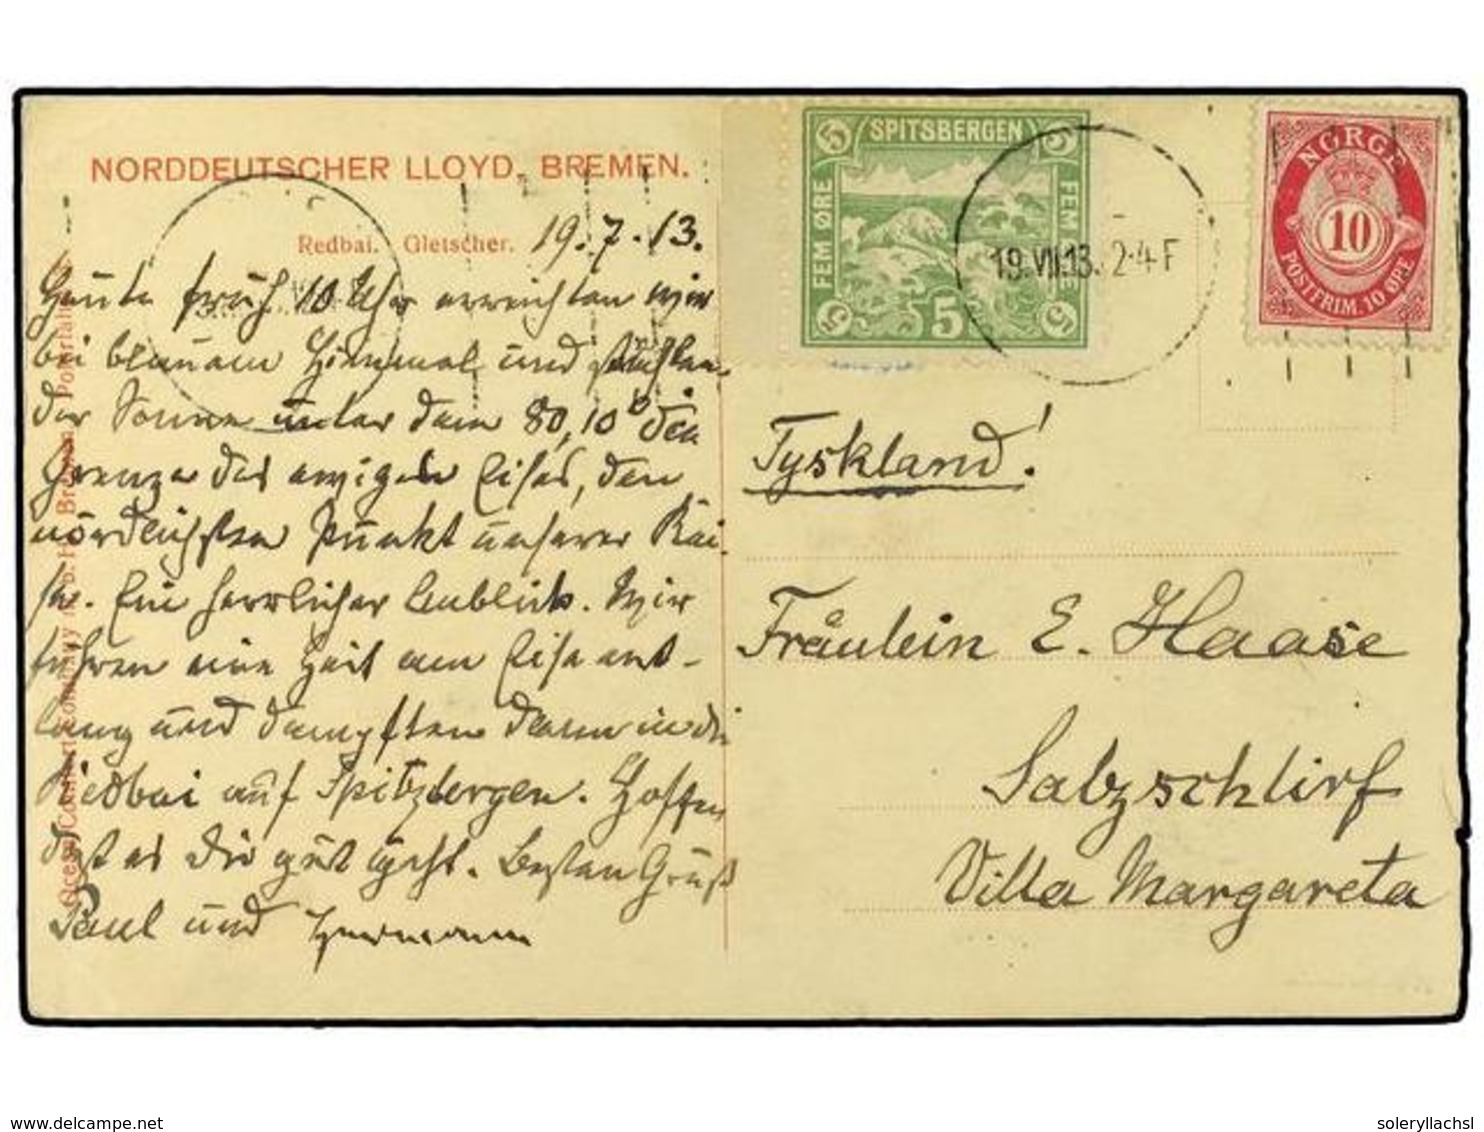 NORDDEUTSCHER LLOYD, BREMEN.
Redbai. Gletscher. 19.7.13.
Heute früh 10 Uhr erreichten wir
bei blauem Himmel und strahlen-
der Sonne unter dem 80,10° die
Grenze des ewigen Eises, den
nördlichsten Punkt unserer Rei-
se. Ein herrlicher Anblick. Wir
fuhren eine Zeit am Eise ent-
lang und dampften dann in die
Redbai auf Spitzbergen. Hoffen
daß es Dir gut geht. Besten Gruß
Paul und Hermann
SPITSBERGEN
5 5
FEM ØRE FEM ØRE
5 5 5
19.VII.13. 2-4 F
NORGE
10
POSTFRIM. 10 ØRE
Tyskland!
Fräulein E. Haase
Salzschlirf
Villa Margareta
www.delcampe.net
soleryllachsl